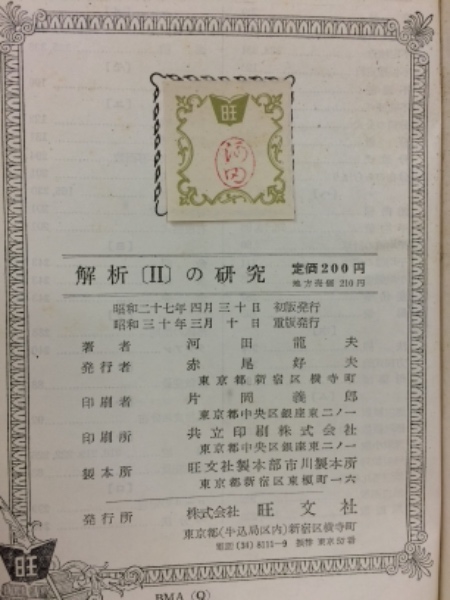 旺
河田
解析〔II〕の研究 定価200円
地方売価 210円
昭和二十七年四月三十日 初版発行
昭和三十年三月十日 重版発行
著者 河田龍夫
発行者 赤尾好夫
東京都新宿区横寺町
印刷者 片岡義郎
東京都中央区銀座東二ノ一
印刷所 共立印刷株式会社
東京都中央区銀座東二ノ一
製本所 旺文社製本部市川製本所
東京都新宿区東榎町一六
発行所 株式会社 旺文社
東京都(牛込局区内)新宿区横寺町
電話(34) 振替 東京
旺
BMA (Q)